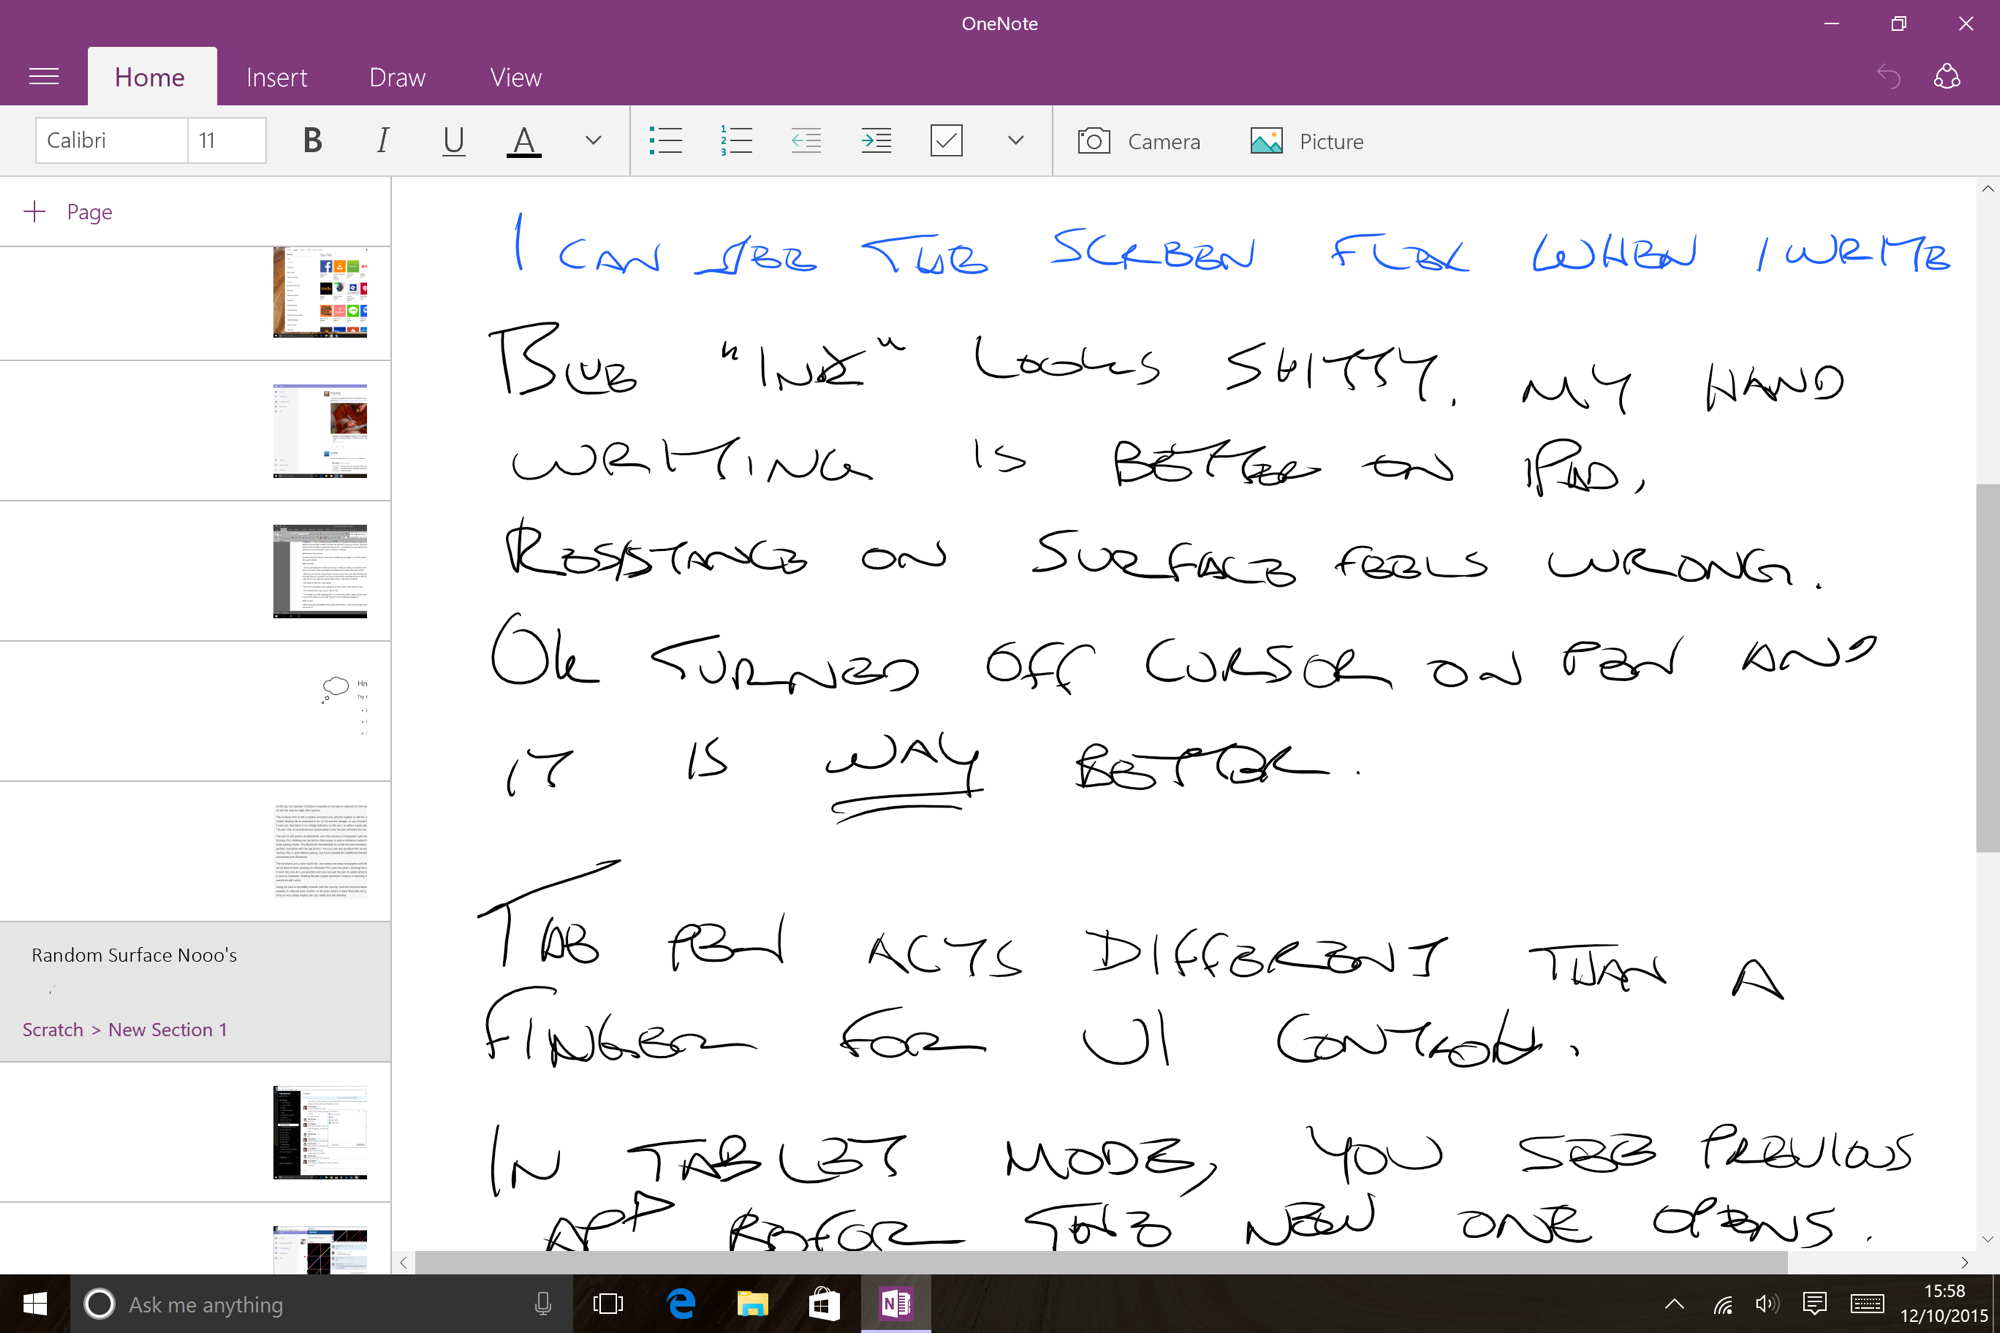 OneNote
Home Insert Draw View
Calibri 11 B I U A Camera Picture
+ Page
I CAN SEE THE SCREEN FLEX WHEN I WRITE
BLUE "INK" LOOKS SHITTY. MY HAND
WRITING IS BETTER ON IPAD.
RESISTANCE ON SURFACE FEELS WRONG.
OK TURNED OFF CURSOR ON PEN AND
IT IS WAY BETTER.
THE PEN ACTS DIFFERENT THAN A
FINGER FOR UI CONTROL.
IN TABLET MODE, YOU SEE PREVIOUS
APP BEFOR THE NEW ONE OPENS.
Random Surface Nooo's
Scratch > New Section 1
Ask me anything
15:58
12/10/2015